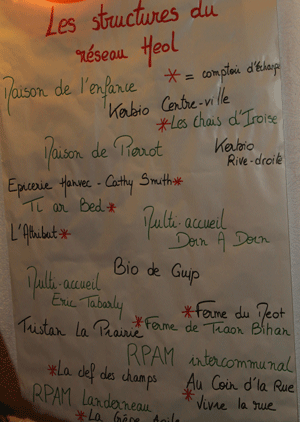 Les structures du
réseau Heol
* = comptoir d'échange
Maison de l'enfance
Kerbio Centre-ville
*Les chais d'Iroise
Maison de Pierrot
Kerbio
Rive-droite
Epicerie Hanvec - Cathy Smith*
Ti ar Bed*
Multi-accueil
Dorn A Dorn
L'Attribut*
Bio de Guip
Multi-accueil
Eric Tabarly
*Ferme du
Tristan La Prairie
*Ferme de Traon Bihan
RPAM intercommunal
*La clef des champs
Au Coin d'la Rue
RPAM Landerneau
*Vivre la rue
*La Grêpe Agile